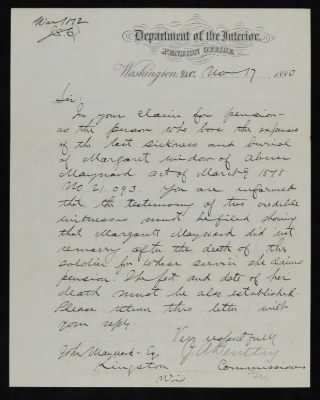 War 1812
Department of the Interior,
PENSION OFFICE,
Washington, D.C. Nov 17, 1880
Sir,
In your claim for pension
as the person who bore the expenses
of the last sickness and burial
of Margaret widow of Abner
Maynard act of March 9 1878.
No 21.093. You are informed
that the testimony of two credible
witnesses must be filed showing
that Margarett Maynard did not
remarry after the death of the
soldier for whose service she claims
pension. The fact and date of her
death must be also established.
Please return this letter with
your reply.
Very respectfully
J A Bentley
John Maynard - Esq Commissioner
Kingston
Wis